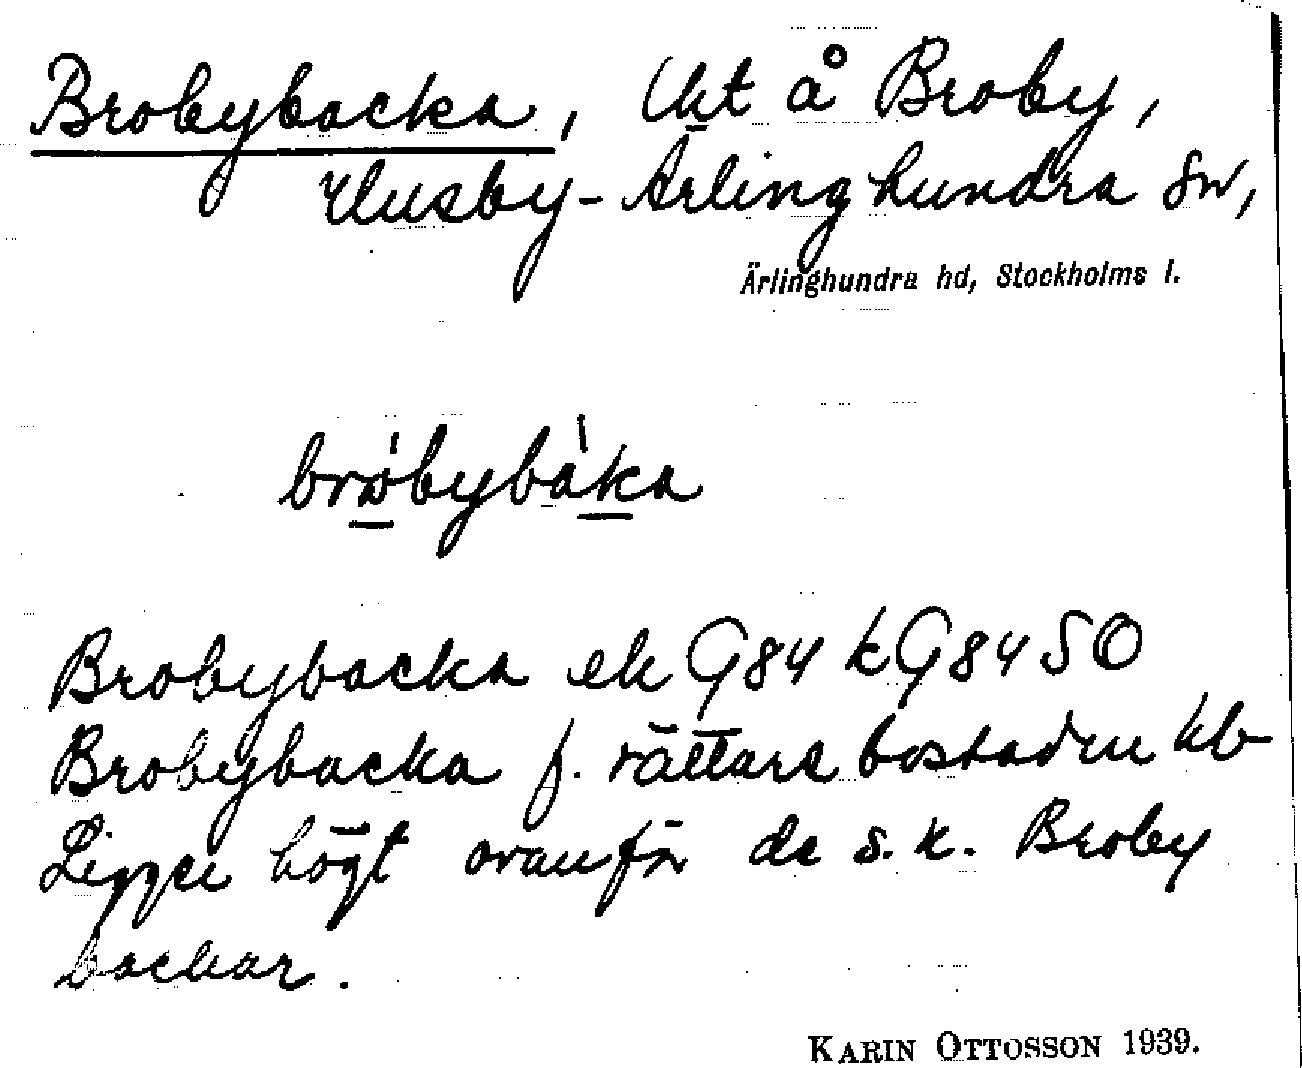 Brobybacka, lht å Broby,
Husby-Ärlinghundra sn,
Ärlinghundra hd, Stockholms l.
brobybaka
Brobybacka ek G84 k G84 SO
Brobybacka f. rättarebostaden
Ligger högt ovanför de s.k. Broby
backar.
KARIN OTTOSSON 1939.